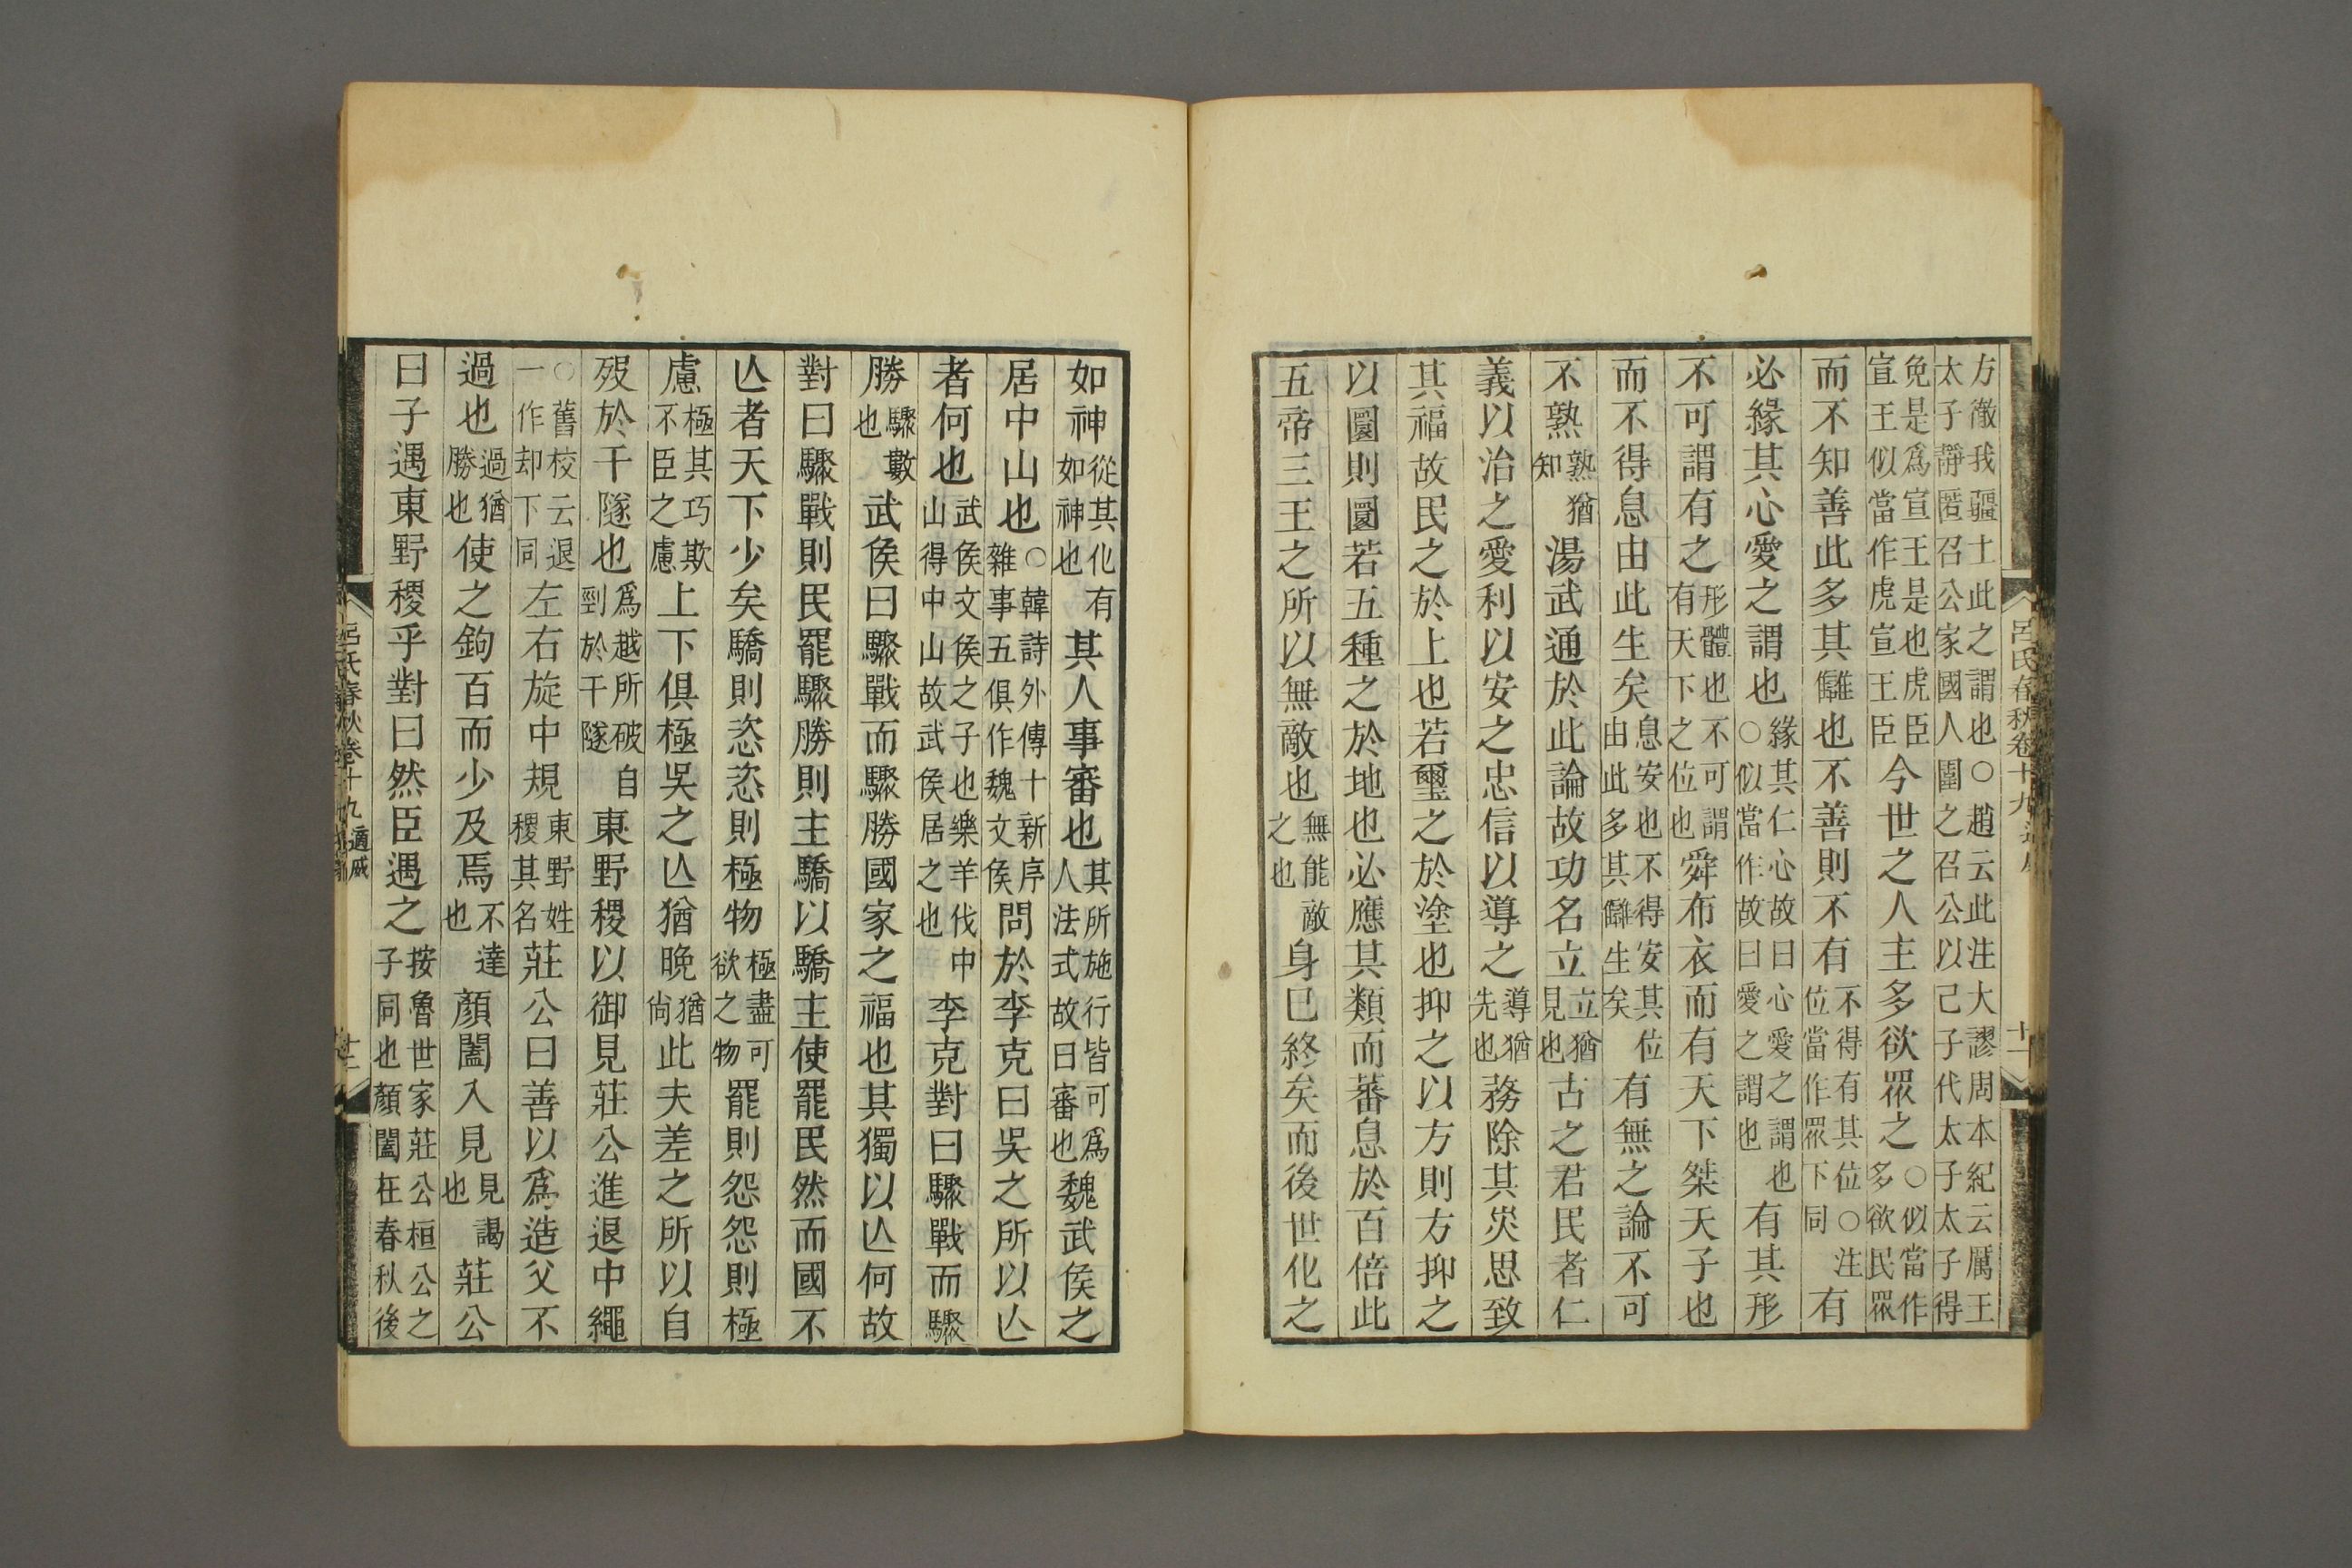 方徹我疆土此之謂也○趙云此注大謬周本紀云厲王
太子靜匿召公家國人圍之召公以己子代太子太子得
免是爲宣王是也虎臣宣王似當作虎宣王臣今世之人主多欲眾之○似當作多欲民眾
而不知善此多其讎也不善則不有不得有其位○注位當作眾下同有
必緣其心愛之謂也緣其仁心故曰心愛之謂也○似當作故曰愛之謂也有其形
不可謂有之形體也不可謂有天下之位也舜布衣而有天下桀天子也
而不得息由此生矣息安也不得安其位由此多其讎生矣有無之論不可
不熟熟猶知湯武通於此論故功名立立猶見也古之君民者仁
義以治之愛利以安之忠信以導之導猶先也務除其災思致
其福故民之於上也若璽之於塗也抑之以方則方抑之
以圜則圜若五種之於地也必應其類而蕃息於百倍此
五帝三王之所以無敵也無能敵之也身已終矣而後世化之
如神從其化有如神也其人事審也其所施行皆可爲人法式故曰審也魏武侯之
居中山也○韓詩外傳十新序雜事五俱作魏文侯問於李克曰吳之所以亾
者何也武侯文侯之子也樂羊伐中山得中山故武侯居之也李克對曰驟戰而驟
勝驟數也武侯曰驟戰而驟勝國家之福也其獨以亾何故
對曰驟戰則民罷驟勝則主驕以驕主使罷民然而國不
亾者天下少矣驕則恣恣則極物極盡可欲之物罷則怨怨則極
慮極其巧欺不臣之慮上下俱極吳之亾猶晚猶尙此夫差之所以自
歿於干隧也爲越所破自剄於干隧東野稷以御見莊公進退中繩
○舊校云退一作却下同左右旋中規東野姓稷其名莊公曰善以爲造父不
過也過猶勝也使之鉤百而少及焉不達也顏闔入見見謁也莊公
曰子遇東野稷乎對曰然臣遇之按魯世家莊公桓公之子同也顏闔在春秋後
呂氏春秋卷十九 適威